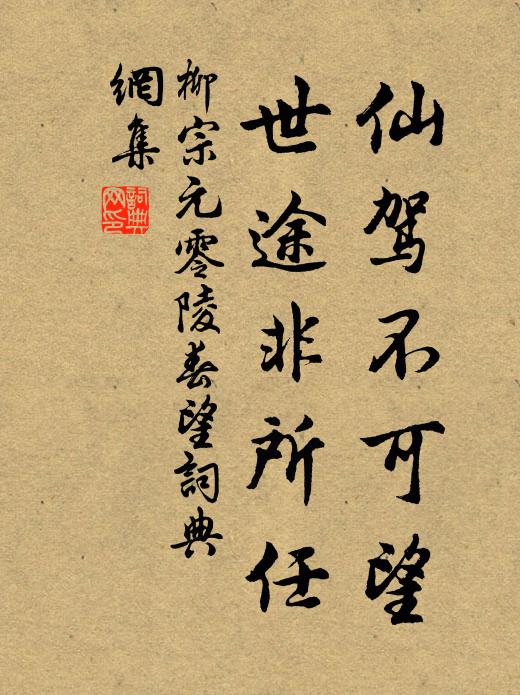 仙驾不可望
世途非所任
柳宗元零陵春望詞典
網集
詞典網印